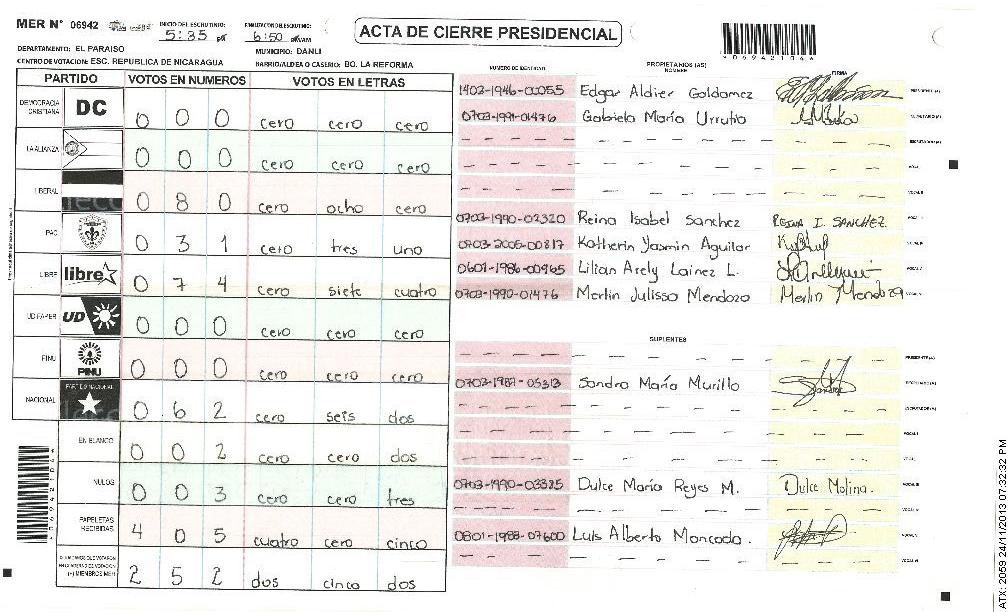 MER N° 06942 INICIO DEL ESCRUTINIO 5:35 pm FINALIZACION DEL ESCRUTINIO: 6:50
ACTA DE CIERRE PRESIDENCIAL
0694210
DEPARTAMENTO: EL PARAISO MUNICIPIO: DANLI
CENTRO DE VOTACION: ESC. REPUBLICA DE NICARAGUA BARRIO/ALDEA O CASERIO: BO. LA REFORMA
PARTIDO VOTOS EN NUMEROS VOTOS EN LETRAS
DEMOCRACIA CRISTIANA DC 0 0 0 cero cero cero
LA ALIANZA 0 0 0 cero cero cero
LIBERAL 0 8 0 cero ocho cero
PAC 0 3 1 cero tres uno
LIBRE libre 0 7 4 cero siete cuatro
UD FAPER UD 0 0 0 cero cero cero
PINU PINU 0 0 0 cero cero cero
NACIONAL PARTIDO NACIONAL 0 6 2 cero seis dos
EN BLANCO 0 0 2 cero cero dos
NULOS 0 0 3 cero cero tres
PAPELETAS RECIBIDAS 4 0 5 cuatro cero cinco
CIUDADANOS QUE VOTARON EN CUADERNO DE VOTACION (+) MIEMBROS MER 2 5 2 dos cinco dos
NUMERO DE IDENTIDAD PROPIETARIOS (AS) NOMBRE FIRMA
1402-1946-00055 Edgar Aldier Goldamez PRESIDENTE (A)
0703-1991-01476 Gabriela María Urrutia SECRETARIO (A)
ESCRUTADOR (A)
VOCAL I
VOCAL II
0703-1990-02320 Reina Isabel Sanchez REINA I. SANCHEZ
0703-2006-00817 Katherin Yasmin Aguilar
0601-1986-00965 Lilian Arely Lainez L.
0703-1990-01476 Merlin Julissa Mendoza Merlin Mendoza
SUPLENTES
PRESIDENTE (A)
0703-1987-05313 Sandra María Murillo SECRETARIO (A)
ESCRUTADOR (A)
VOCAL I
VOCAL II
0703-1990-03385 Dulce María Reyes M. Dulce Molina.
0801-1988-07600 Luis Alberto Moncada.
ATX: 2059 24/11/2013 07:32:32 PM